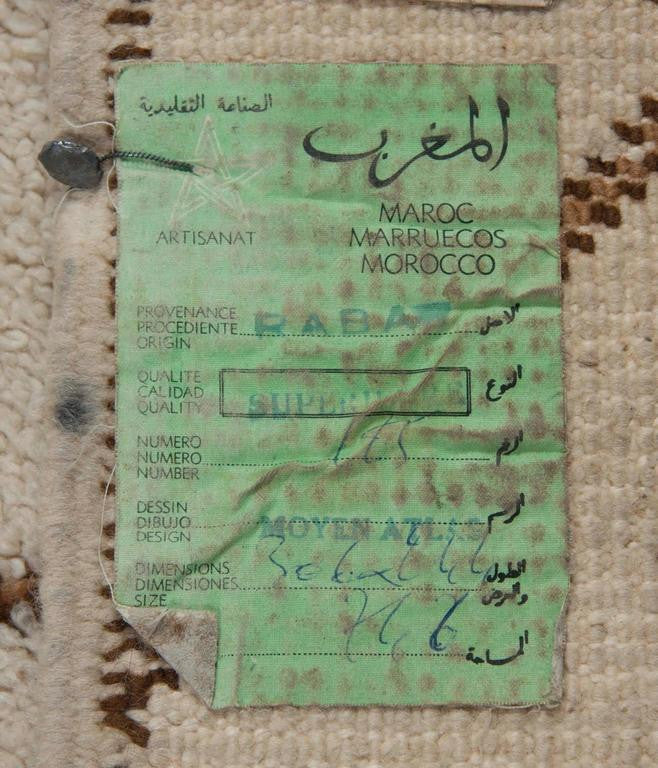 الصناعة التقليدية
المغرب
ARTISANAT
MAROC
MARRUECOS
MOROCCO
PROVENANCE
PROCEDIENTE
ORIGIN
RABAT
الاصل
QUALITE
CALIDAD
QUALITY
النوع
NUMERO
NUMERO
NUMBER
الرقم
DESSIN
DIBUJO
DESIGN
MOYEN ATLAS
الرسم
DIMENSIONS
DIMENSIONES
SIZE
الطول
والعرض
المساحة